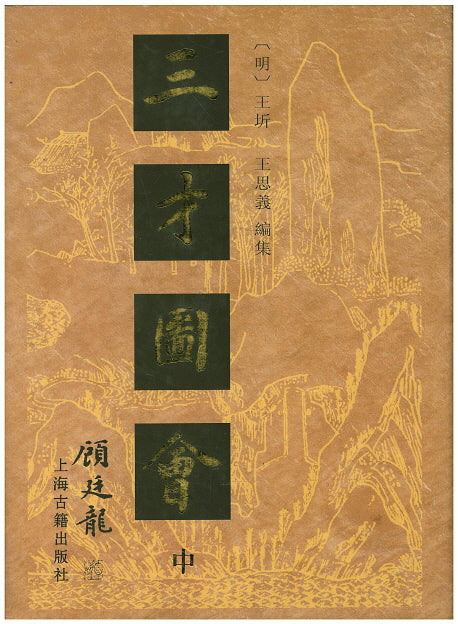 〔明〕王圻 王思義 編集
三才圖會
中
顧廷龍
上海古籍出版社